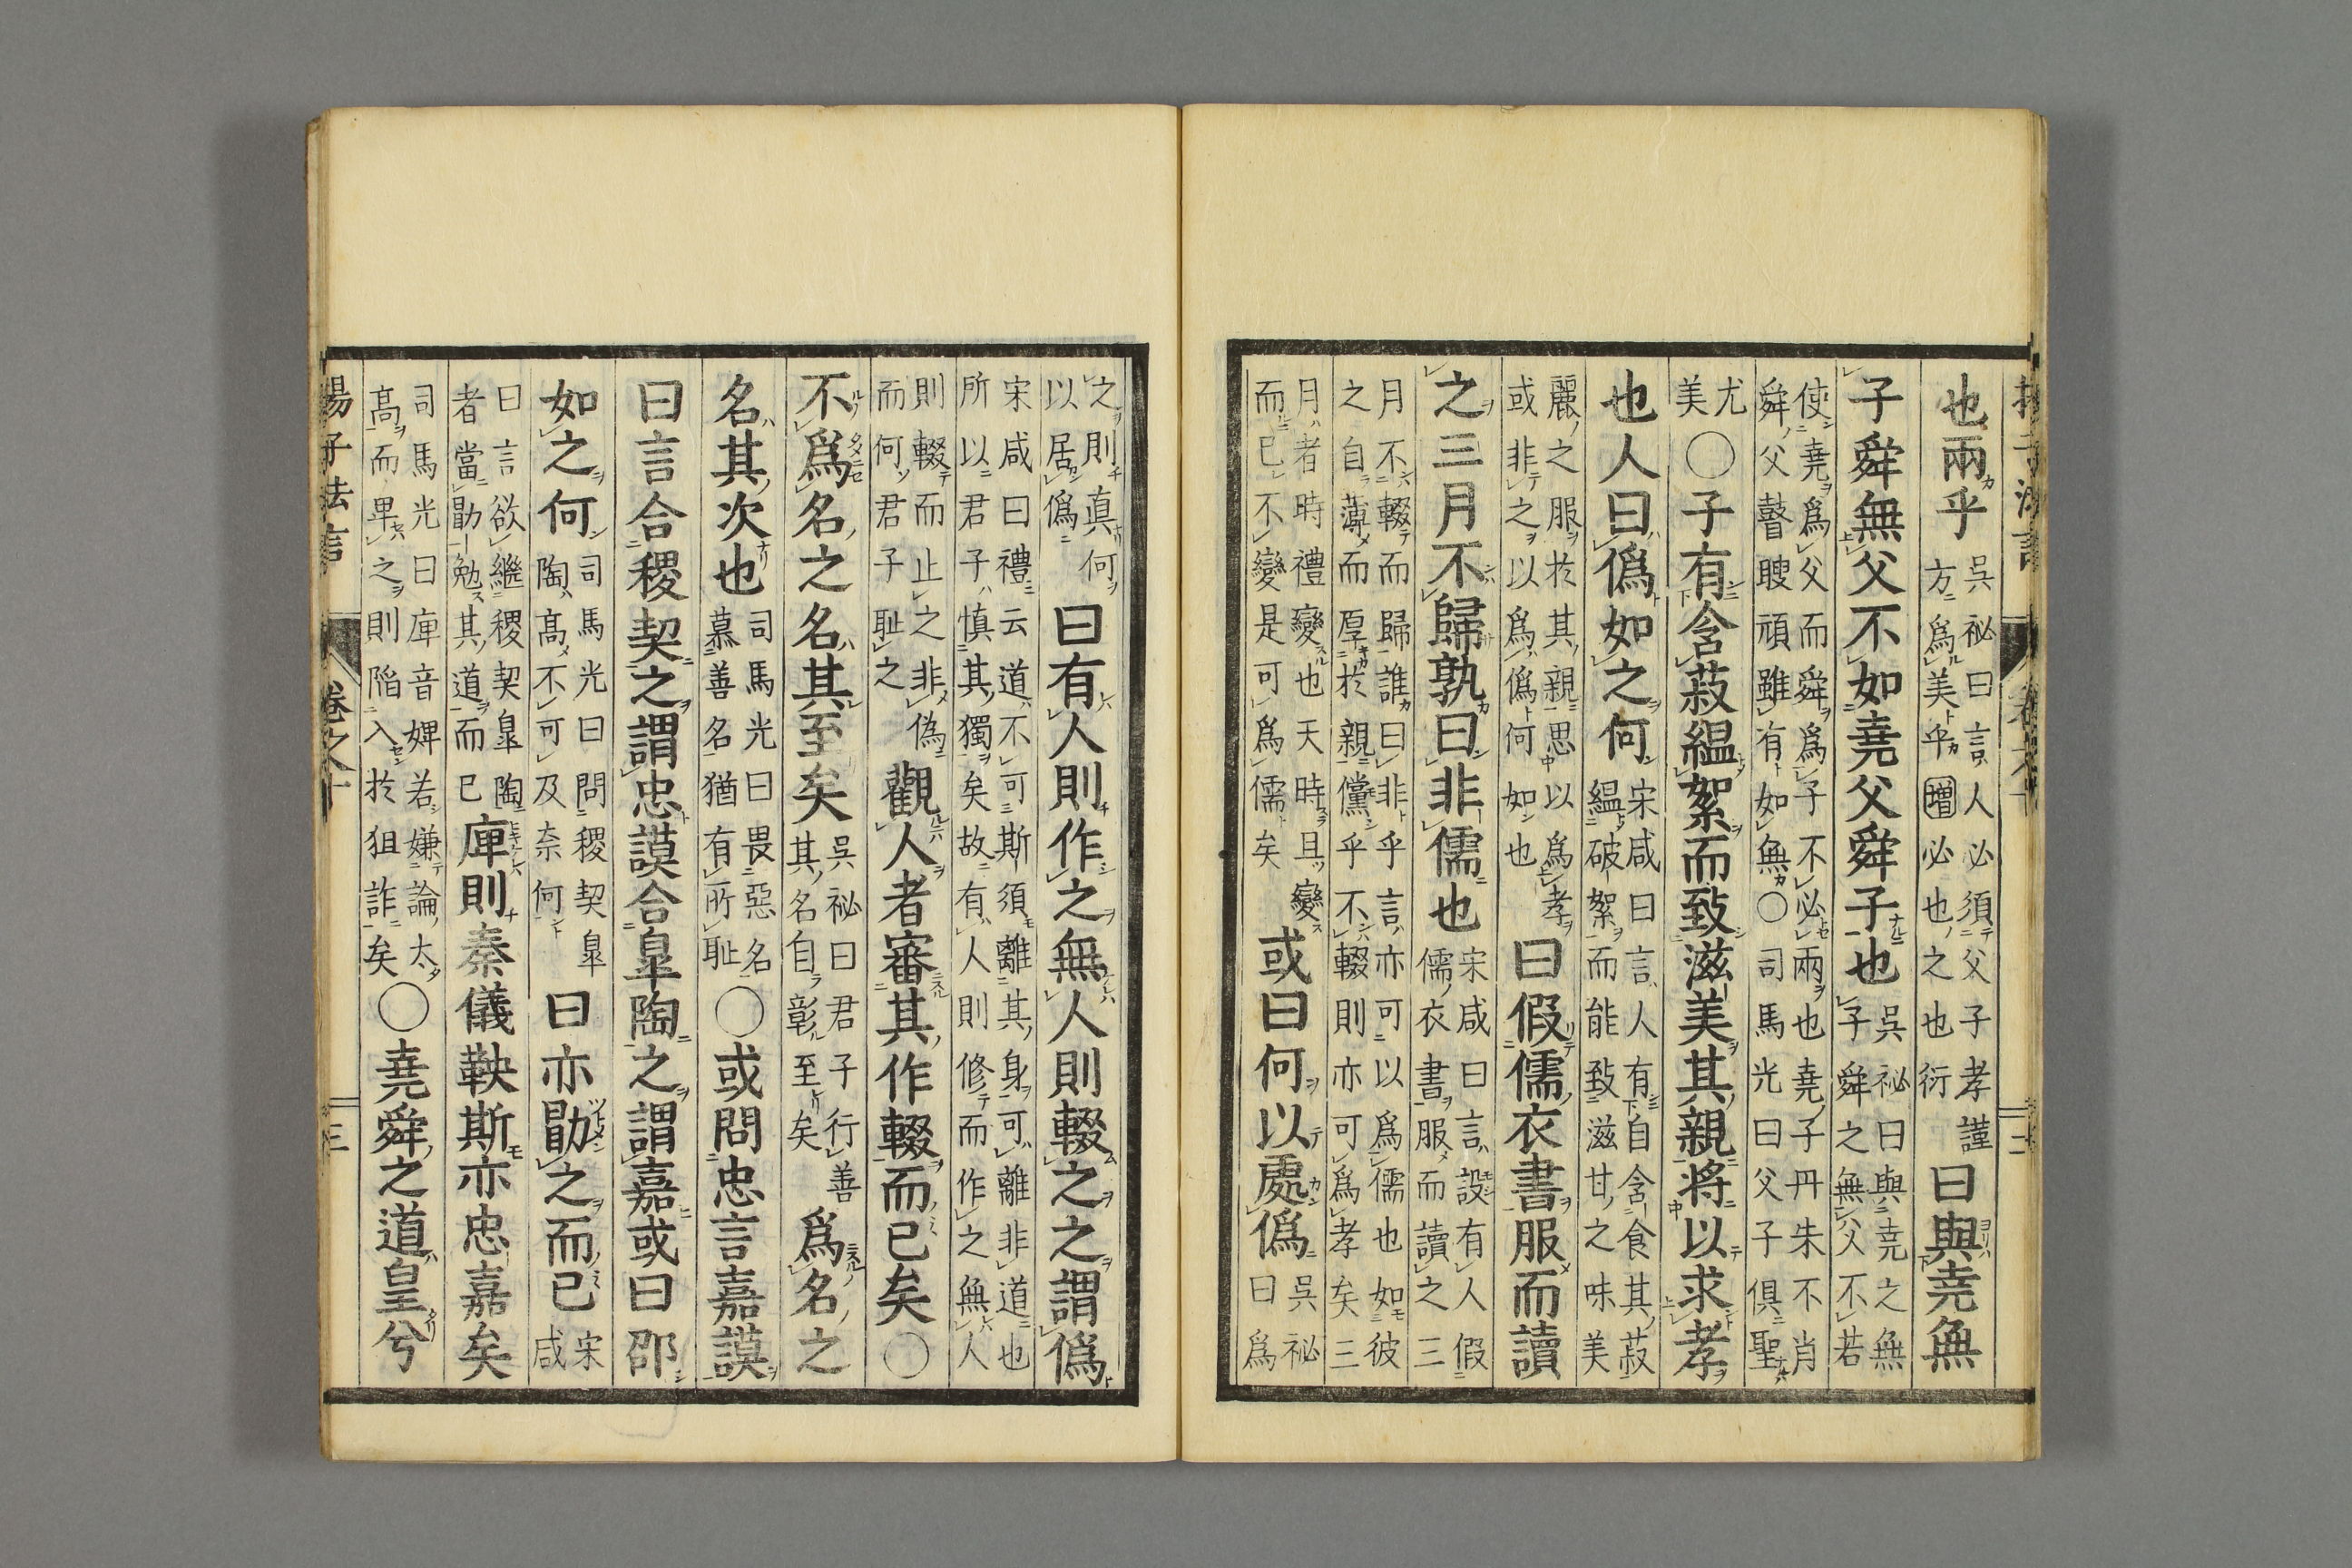 也兩乎吳祕曰言人必須父子孝謹方爲美乎增必也之也衍曰與堯無
子舜無父不如堯父舜子也吳祕曰與堯之無子舜之無父不若
使堯爲父而舜爲子不必兩也堯子丹朱不肖舜父瞽瞍頑雖有如無○司馬光曰父子俱聖
尤美○子有含菽縕絮而致滋美其親將以求孝
也人曰僞如之何宋咸曰言人有自含食其菽縕破絮而能致滋甘之味美
麗之服於其親思以爲孝或非之以爲僞何如也曰假儒衣書服而讀
之三月不歸孰曰非儒也宋咸曰言設有人假儒衣書服而讀之三
月不輟而歸誰曰非乎言亦可以爲儒也如彼之自薄而厚於親儻乎不輟則亦可爲孝矣三
月者時禮變也天時且變而已不變是可爲儒矣或曰何以處僞吳祕曰爲
之則真何以居僞曰有人則作之無人則輟之之謂僞
宋咸曰禮云道不可斯須離其身可離非道也所以君子慎其獨矣故有人則修而作之無人
則輟而止之非僞而何君子恥之觀人者審其作輟而已矣○
不爲名之名其至矣吳祕曰君子行善其名自彰至矣爲名之
名其次也司馬光曰畏惡名慕善名猶有所恥○或問忠言嘉謨
曰言合稷契之謂忠謨合皐陶之謂嘉或曰邵
如之何司馬光曰問稷契皐陶高不可及奈何曰亦勖之而已宋咸
曰言欲繼稷契皐陶者當勖勉其道而已庳則秦儀鞅斯亦忠嘉矣
司馬光曰庳音婢若嫌論太高而畢之則陷入於狙詐矣○堯舜之道皇兮
楊子法言 卷之十 三